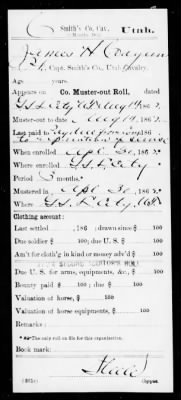 Smith's Co. Cav.
3 Months, 1862.
Utah.
James H
Pvt., Capt. Smith's Co., Utah Cavalry.
Age years.
Appears on Co. Muster-out Roll, dated
G S L City U T Aug 14, 1862.
Muster-out to date Aug 14, 1862.
Last paid to 186
When enrolled Apl 30, 1862.
Where enrolled G. S. L. City
Period 3 months.
Mustered in Apl 30, 1862.
Where G S L City, U T
Clothing account:
Last settled , 186 ; drawn since $ 100
Due soldier $ 100; due U. S. $ 100
Am't for cloth'g in kind or money adv'd $ 100
Due U. S. for arms, equipments, &c., $ 100
Bounty paid $ 100; due $ 100
Valuation of horse, $ 100
Valuation of horse equipments, $ 100
Remarks:
The only roll on file for this organization.
Book mark:
Copyist.